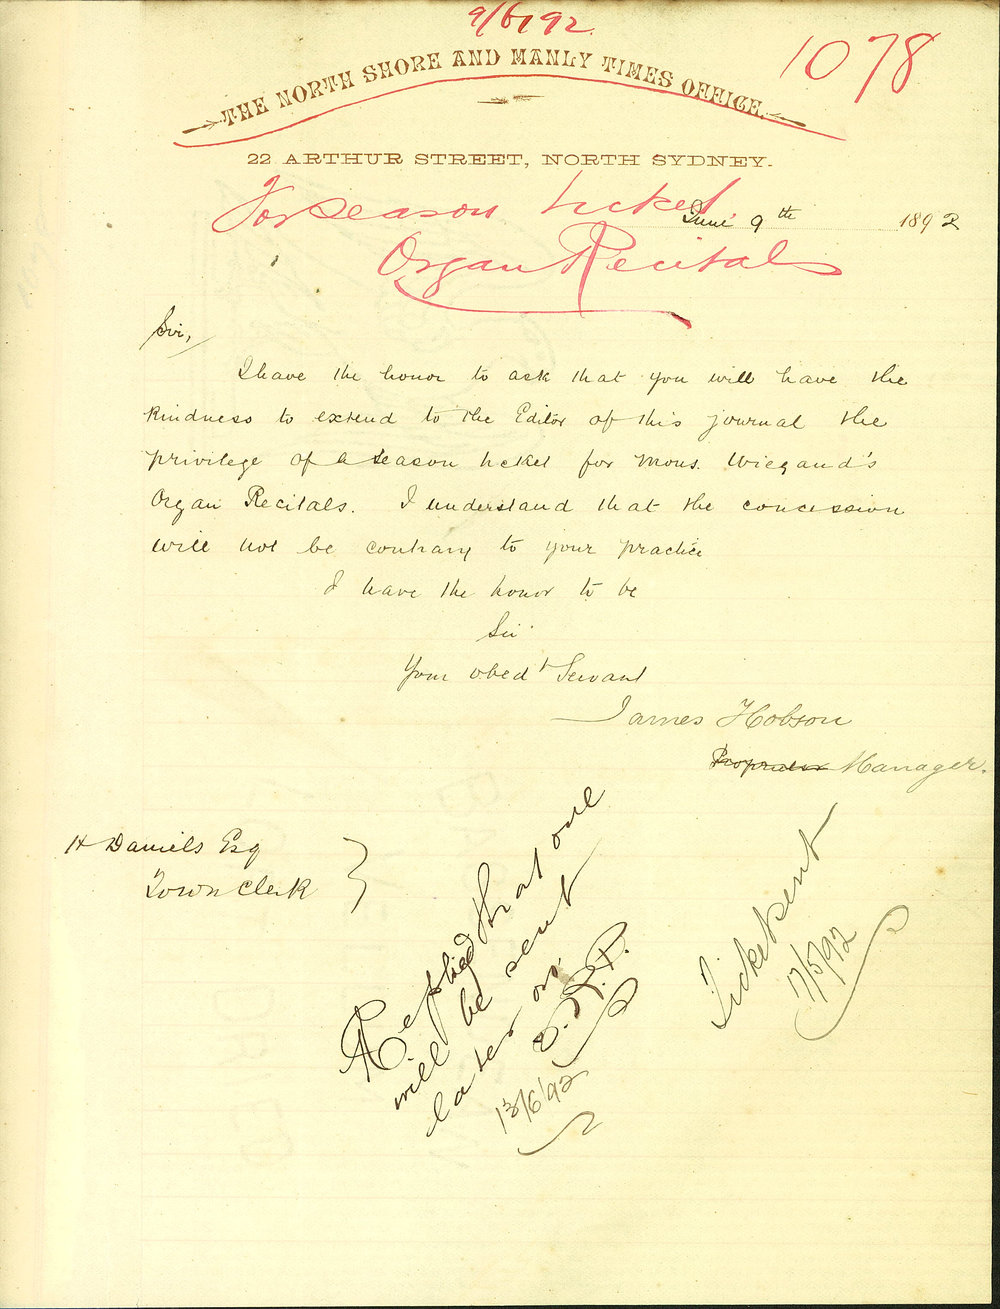 9/6/92.
1078
THE NORTH SHORE AND MANLY TIMES OFFICE.
22 ARTHUR STREET, NORTH SYDNEY.
For Season ticket
June 9th 1892
Organ Recitals
Sir,
I have the honor to ask that you will have the
kindness to extend to the Editor of this journal the
privilege of a season ticket for Mons. Wiegand's
Organ Recitals. I understand that the concession
will not be contrary to your practice
I have the honor to be
Sir
Your obedt Servant
James Hobson
Proprietor Manager.
H Daniels Esq
Town Clerk
Replied that one
will be sent
later on.
13/6/92
Ticket sent